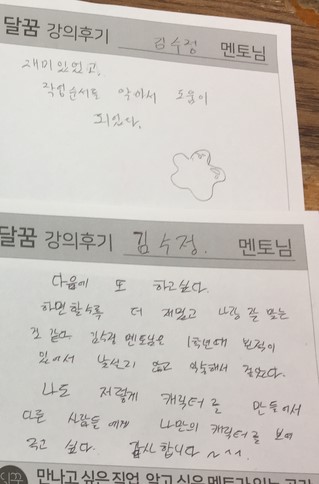 달꿈 강의후기 김수정 멘토님
재미있었고,
작업순서도 알아서 도움이
되었다.
달꿈 강의후기 김수정. 멘토님
다음에 또 하고싶다.
하면 할수록 더 재밌고 나랑 잘 맞는
것 같다. 김수정 멘토님은 1학년때 본적이
있어서 낯설지 않고 익숙해서 좋았다.
나도 저렇게 캐릭터를 만들어서
다른 사람들에게 나만의 캐릭터를 보여
주고 싶다. 감사합니다~^^
달꿈 만나고 싶은 직업, 알고 싶은 멘토가 있는 공간